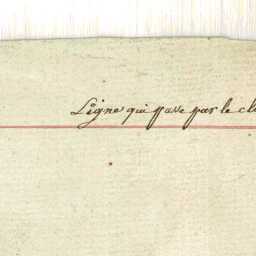 Ligne qui passe par le clo